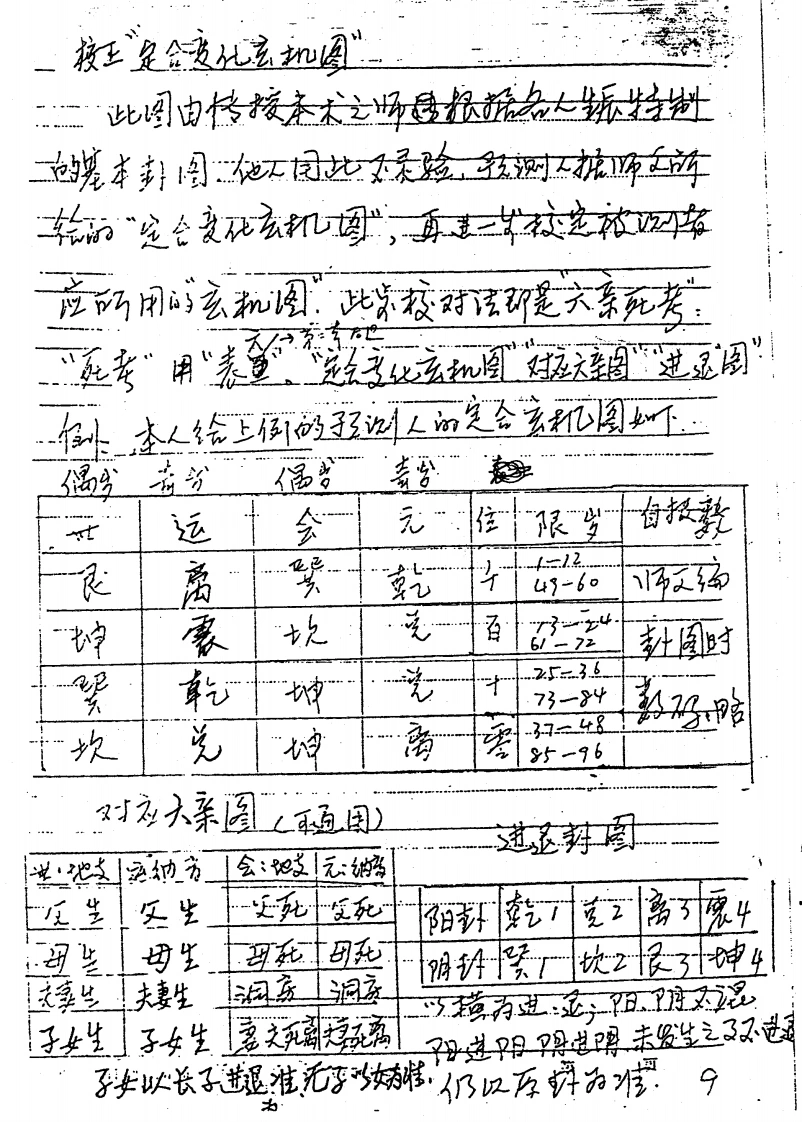 校正"定合变化玄机图"
此图由传接本术之师尊根据各人生辰特制
的基本卦图.他人因此不灵验.预测人据师父所
给的"定合变化玄机图",再进一步校定被测者
应所用的"玄机图".此步校对法即是"六亲死考":
"死考"用"表
"定合变化玄机图"对应六亲图""进退图"
例.本人给上例的预测人的定合玄机图如下
偶岁 奇岁 偶岁 奇岁
世 运 会 元 位 限岁 自授数
艮 离 巽 乾 千 1-12 49-60 师父编
坤 震 坎 兑 百 13-24 61-72 卦图时
巽 乾 坤 兑 十 25-36 73-84 数码:略
坎 兑 坤 离 零 37-48 85-96
对应六亲图(可通用)
世:地支 运纳音 会:地支 元:纳音
父生 父生 父死 父死
母生 母生 母死 母死
夫妻生 夫妻生 洞房 洞房
子女生 子女生 妻夫死离 夫妻死离
子女以长子进退为准,无子以女为准.
进退卦图
阳卦 乾1 兑2 离3 震4
阴卦 巽1 坎2 艮3 坤4
以横为进.退;阳.阴不混
阳进阳阴进阴.未发生之又不进退
仍以原卦为准.
9